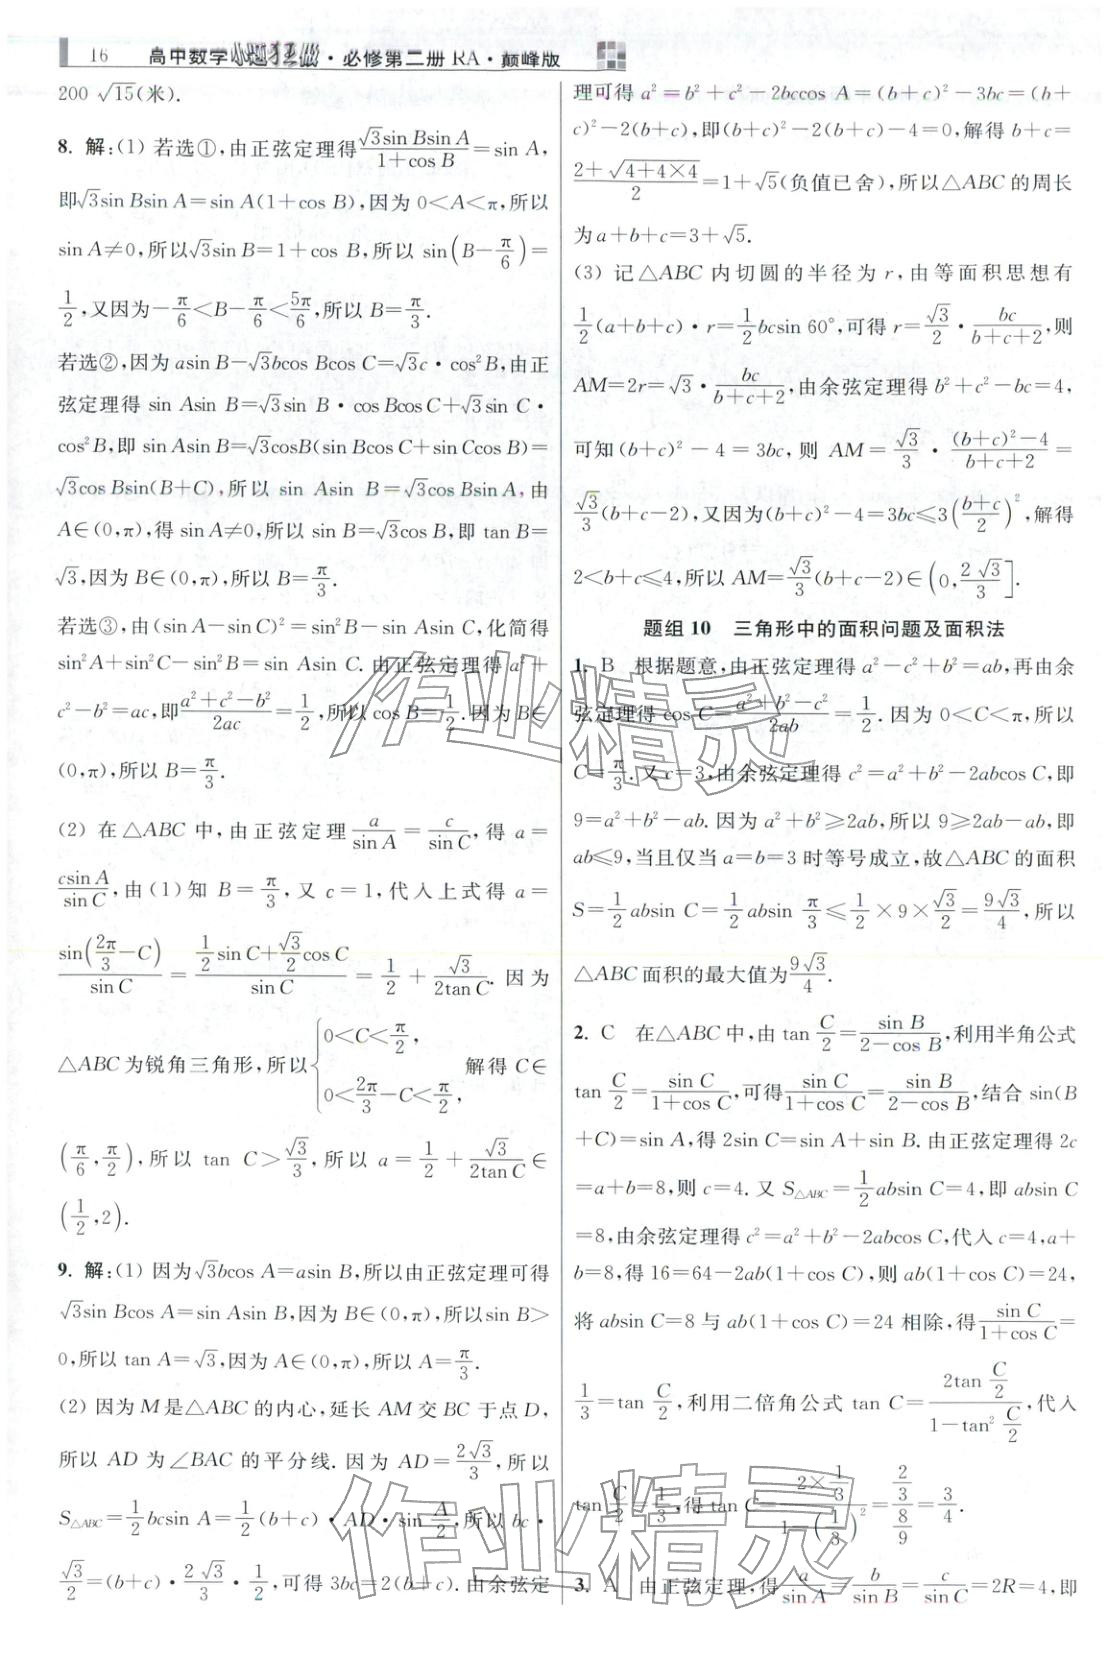 16 高中数学小题狂做·必修第二册 RA·巅峰版
200√15(米).
8. 解:(1) 若选①,由正弦定理得 √3sin Bsin A/(1+cos B)=sin A,
即√3sin Bsin A=sin A(1+cos B),因为 0<A<π,所以
sin A≠0,所以√3sin B=1+cos B,所以 sin(B-π/6)=
1/2,又因为-π/6<B-π/6<5π/6,所以 B=π/3.
若选②,因为 asin B-√3bcos Bcos C=√3c·cos²B,由正
弦定理得 sin Asin B=√3sin B·cos Bcos C+√3sin C·
cos²B,即 sin Asin B=√3cosB(sin Bcos C+sin Ccos B)=
√3cos Bsin(B+C),所以 sin Asin B=√3cos Bsin A,由
A∈(0,π),得 sin A≠0,所以 sin B=√3cos B,即 tan B=
√3,因为 B∈(0,π),所以 B=π/3.
若选③,由(sin A-sin C)²=sin²B-sin Asin C,化简得
sin²A+sin²C-sin²B=sin Asin C.由正弦定理得 a²+
c²-b²=ac,即(a²+c²-b²)/2ac=1/2,所以 cos B=1/2.因为 B∈
(0,π),所以 B=π/3.
(2) 在△ABC 中,由正弦定理 a/sin A=c/sin C,得 a=
csin A/sin C,由(1)知 B=π/3,又 c=1,代入上式得 a=
sin(2π/3-C)/sin C=(1/2sin C+√3/2cos C)/sin C=1/2+√3/(2tan C).因为
△ABC为锐角三角形,所以{0<C<π/2, 0<2π/3-C<π/2, 解得 C∈
(π/6,π/2),所以 tan C>√3/3,所以 a=1/2+√3/(2tan C)∈
(1/2,2).
9. 解:(1) 因为√3bcos A=asin B,所以由正弦定理可得
√3sin Bcos A=sin Asin B,因为 B∈(0,π),所以sin B>
0,所以 tan A=√3,因为 A∈(0,π),所以 A=π/3.
(2) 因为 M 是△ABC 的内心,延长 AM 交 BC 于点 D,
所以 AD 为∠BAC 的平分线.因为 AD=2√3/3,所以
S△ABC=1/2bcsin A=1/2(b+c)·AD·sin A/2,所以 bc·
√3/2=(b+c)·2√3/3·1/2,可得 3bc=2(b+c).由余弦定
理可得 a²=b²+c²-2bccos A=(b+c)²-3bc=(b+
c)²-2(b+c),即(b+c)²-2(b+c)-4=0,解得 b+c=
(2+√(4+4×4))/2=1+√5(负值已舍),所以△ABC 的周长
为 a+b+c=3+√5.
(3) 记△ABC 内切圆的半径为 r,由等面积思想有
1/2(a+b+c)·r=1/2bcsin 60°,可得 r=√3/2·bc/(b+c+2),则
AM=2r=√3·bc/(b+c+2),由余弦定理得 b²+c²-bc=4,
可知(b+c)²-4=3bc,则 AM=√3/3·((b+c)²-4)/(b+c+2)=
√3/3(b+c-2),又因为(b+c)²-4=3bc≤3((b+c)/2)²,解得
2<b+c≤4,所以 AM=√3/3(b+c-2)∈(0,2√3/3].
题组 10 三角形中的面积问题及面积法
1. B 根据题意,由正弦定理得 a²-c²+b²=ab,再由余
弦定理得 cos C=(a²+b²-c²)/2ab=1/2.因为 0<C<π,所以
C=π/3.又 c=3,由余弦定理得 c²=a²+b²-2abcos C,即
9=a²+b²-ab.因为 a²+b²≥2ab,所以 9≥2ab-ab,即
ab≤9,当且仅当 a=b=3 时等号成立,故△ABC的面积
S=1/2absin C=1/2absin π/3≤1/2×9×√3/2=9√3/4,所以
△ABC 面积的最大值为9√3/4.
2. C 在△ABC 中,由 tan C/2=sin B/(2-cos B),利用半角公式
tan C/2=sin C/(1+cos C),可得sin C/(1+cos C)=sin B/(2-cos B),结合 sin(B
+C)=sin A,得 2sin C=sin A+sin B.由正弦定理得 2c
=a+b=8,则 c=4.又 S△ABC=1/2absin C=4,即 absin C
=8,由余弦定理得 c²=a²+b²-2abcos C,代入 c=4,a+
b=8,得 16=64-2ab(1+cos C),则 ab(1+cos C)=24,
将 absin C=8 与 ab(1+cos C)=24 相除,得sin C/(1+cos C)=
1/3=tan C/2,利用二倍角公式 tan C=2tan C/2/(1-tan² C/2),代入
tan C/2=1/3,得 tan C=(2×1/3)/(1-(1/3)²)=(2/3)/(8/9)=3/4.
3. A 由正弦定理,得 a/sin A=b/sin B=c/sin C=2R=4,即
作业精灵
作业精灵